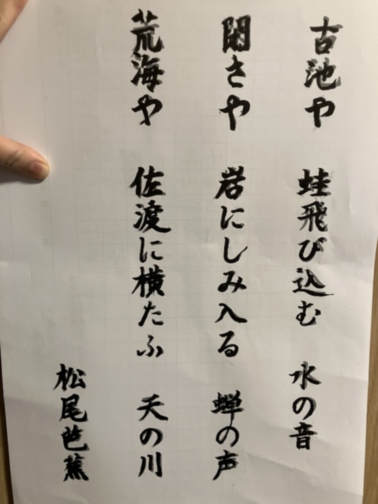 古池や 蛙飛び込む 水の音
閑さや 岩にしみ入る 蝉の声
荒海や 佐渡に横たふ 天の川
松尾芭蕉